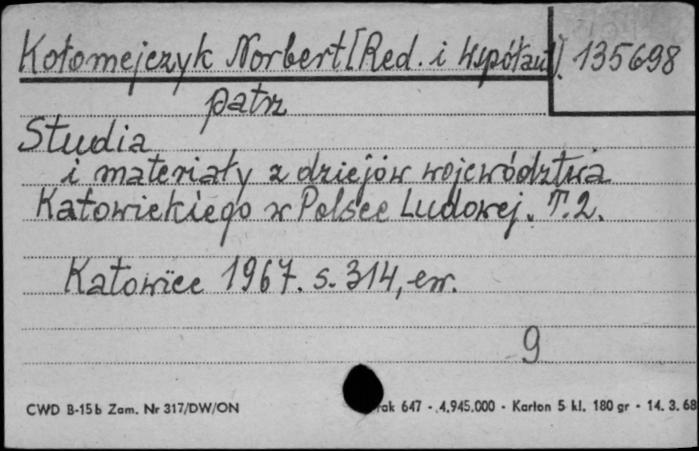 Kołomejczyk Norbert [Red. i współaut]. 135698
patrz
Studia
i materiały z dziejów województwa
Katowickiego w Polsce Ludowej. T.2.
Katowice 1967. s. 314, err.
9
CWD B-15b Zam. Nr 317/DW/ON rak 647 - 4.945.000 - Karton 5 kl. 180 gr - 14. 3. 68